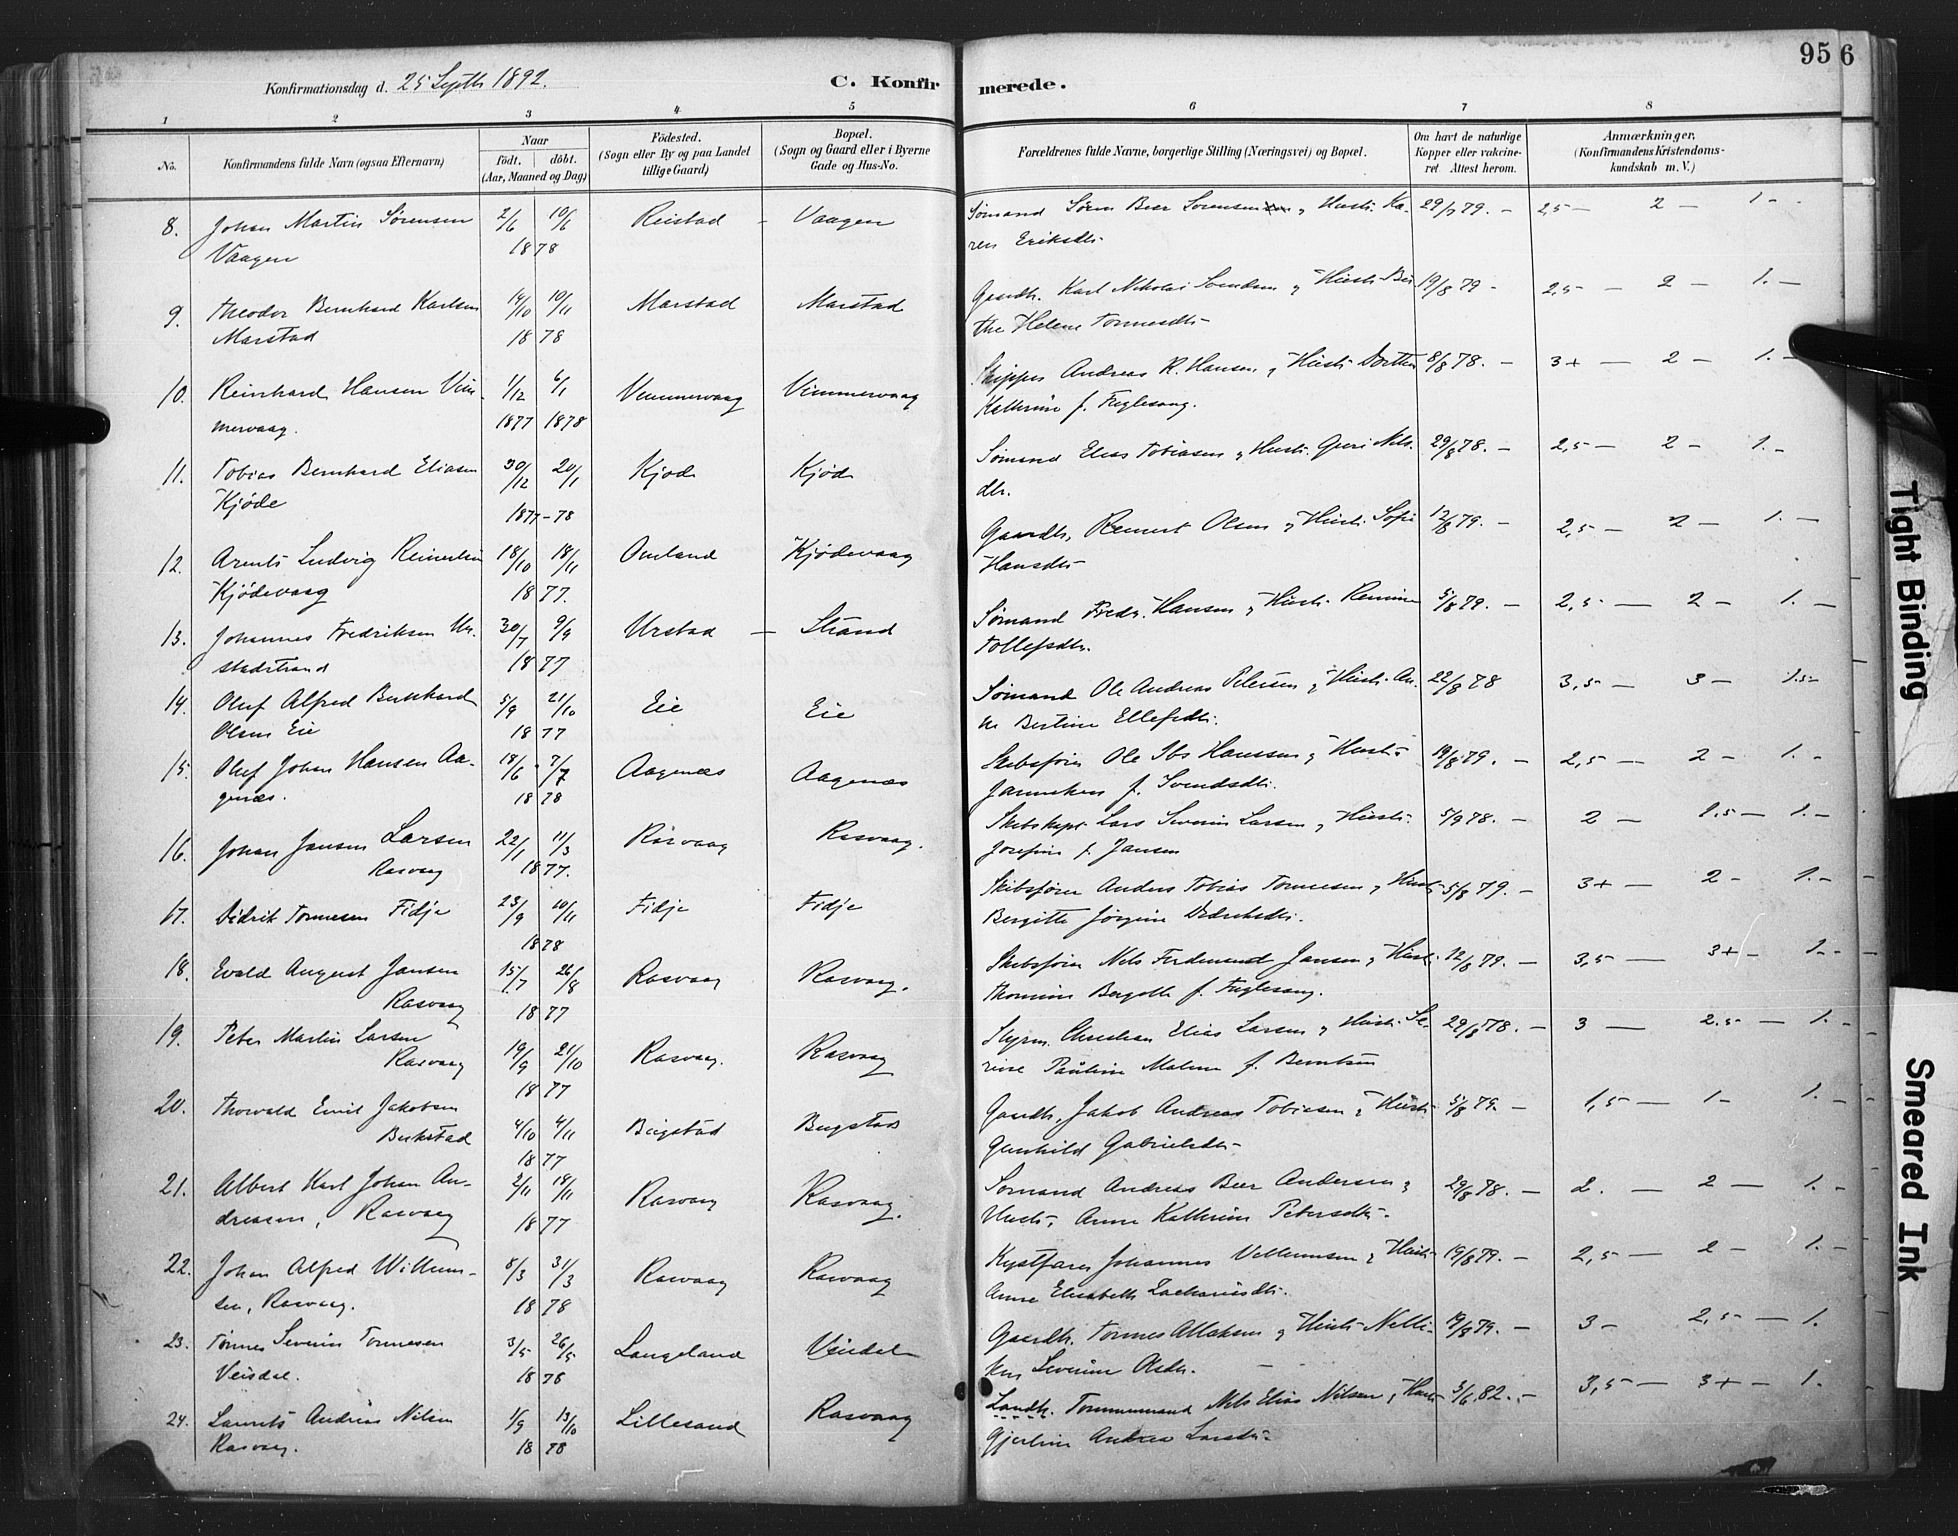 95 6
Konfirmationsdag d. 25 Septb 1892.
C. Konfirmerede.
1 2 3 4 5 6 7 8
No.
Konfirmandens fulde Navn (ogsaa Efternavn)
Naar
födt. döbt.
(Aar, Maaned og Dag)
Födested.
(Sogn eller By og paa Landet
tillige Gaard)
Bopæl.
(Sogn og Gaard eller i Byerne
Gade og Hus-No.
Forældrenes fulde Navne, borgerlige Stilling (Næringsvei) og Bopæl.
Om havt de naturlige
Kopper eller vakcine-
ret Attest herom.
Anmærkninger,
(Konfirmandens Kristendoms-
kundskab m. V.)
8. Johan Martin Sørensen 2/6 10/6 Reistad - Vaagen Sømand Søren Beer Sørensen & Hustr. Ka- 29/7 79. - 2,5 - 2 - 1. -
Vaagen 1878 ren Eriksdtr
9. Theodor Bernhard Karlsen 14/10 10/11 Marstad Marstad Gaardb. Karl Nikolai Svendsen & Hustr. Ber- 19/8 79 - 2,5 - 2 - 1. -
Marstad 1878 the Helene Tønnesdtr
10. Reinhard Hansen Vim- 1/12 6/1 Vimmervaag Vimmervaag Skipper Andreas R. Hansen & Hustr. Dorthea 8/8 78. - 3+ - 2 - 1. -
mervaag. 1877 1878 Kathrine f. Fuglesang.
11. Tobias Bernhard Eliasen 30/12 20/1 Kjøde Kjøde Sømand Elias Tobiasen & Hustr. Guri Nils- 29/8 78. - 2,5 - 2 - 1. -
Kjøde 1877-78 dtr.
12. Arents Ludvig Reinertsen 18/10 18/11 Omland Kjødevaag Gaardb. Reinert Olsen & Hustr. Sofie 12/8 79. - 2,5 - 2 - 1. -
Kjødevaag 1877. Hansdtr
13. Johannes Fredriksen Ur- 30/7 9/9 Urstad - Strand Sømand Fredr. Hansen & Hustr. Remine 5/8 79. - 2,5 - 2 - 1. -
stadstrand 1877 Tollefsdtr.
14. Oluf Alfred Bernhard 5/9 21/10 Eie Eie Sømand Ole Andreas Petersen & Hustr. An- 22/8 78 3,5 - 3 - 1.5-
Olsen Eie 1877 ne Bertine Ellefsdtr.
15. Oluf Johan Hansen Aa- 18/6 7/7 Aagenæs Aagenæs Skibsfører Ole Ibs Hanssen & Hustr. 19/8 79. - 2,5 - 2 - 1. -
genæs. 1878 Janneken f. Svendsdtr.
16. Johan Jansen Larsen 22/1 11/3 Rasvaag Rasvaag. Skibskapt. Lars Severin Larsen & Hustr. 5/9 78. - 2 - 1.5 - 1. -
Rasvaag 1877. Josefine f. Jansen
17. Didrik Tønnesen Fidje 23/9 10/11 Fidje Fidje Skibsfører Anders Tobias Tønnesen & Hustr. 5/8 79. - 3+ - 2 - 1. -
1878 Bergitte Jørgine Didriksdtr.
18. Evald August Jansen 15/7 26/8 Rasvaag Rasvaag. Skibsfører Nils Ferdinand Jansen & Hustr. 12/8 79. - 3,5 - 3+ - 1. -
Rasvaag 1877 Thomine Bergitte f. Fuglesang.
19. Peter Martin Larsen 19/9 21/10 Rasvaag. Rasvaag Styrm. Christian Elias Larsen & Hustr. Se- 29/8 78. - 3 - 2.5 - 1. -
Rasvaag 1877 rine Pauline Malene f. Berntsen
20. Thorvald Emil Jakobsen 4/10 4/11 Bugstad Bugstad Gaardb. Jakob Andreas Tobiasen & Hustr. 5/8 79. - 1,5 - 1 - 1. -
Bukstad 1877 Gunhild Gabrielsdtr
21. Albert Karl Johan An- 2/11 18/11 Rasvaag Rasvaag. Sømand Andreas Beer Andersen & 29/8 78. - 2. - 2 - 1. -
dreasen, Rasvaag 1877 Hustr. Anne Kathrine Petersdtr.
22. Johan Alfred Willum- 8/3 31/3 Rasvaag Rasvaag Kystfarer Johannes Vellumsen & Hustr. 19/8 79. - 2,5 - 2 - 1. -
sen, Rasvaag. 1878 Anne Elisabeth Zachariasdtr.
23. Tønnes Severin Tønnesen 3/5 26/5 Langeland Veisdal Gaardb. Tønnes Atlaksen & Hustr. Nelli- 19/8 79. - 3 - 2,5 - 1.
Veisdal. 1878 ken Severine Olsdtr. -
24. Laurits Andreas Nilsen 1/9 13/10 Lillesand Rasvaag Landh. Tømmermand Nils Elias Nilsen & Hustr. 5/6 82. - 3,5 - 3+ - 1.
Rasvaag. 1878 Gjertine Andrea Larsdtr.
Tight Binding
Smeared Ink